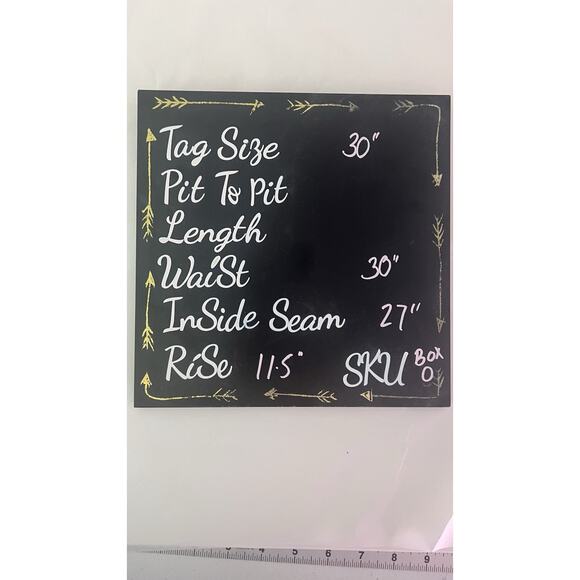 Tag Size 30"
Pit To Pit
Length
Waist 30"
InSide Seam 27"
RiSe 11.5" SKU Box O
3 4 5 6 7 8 9